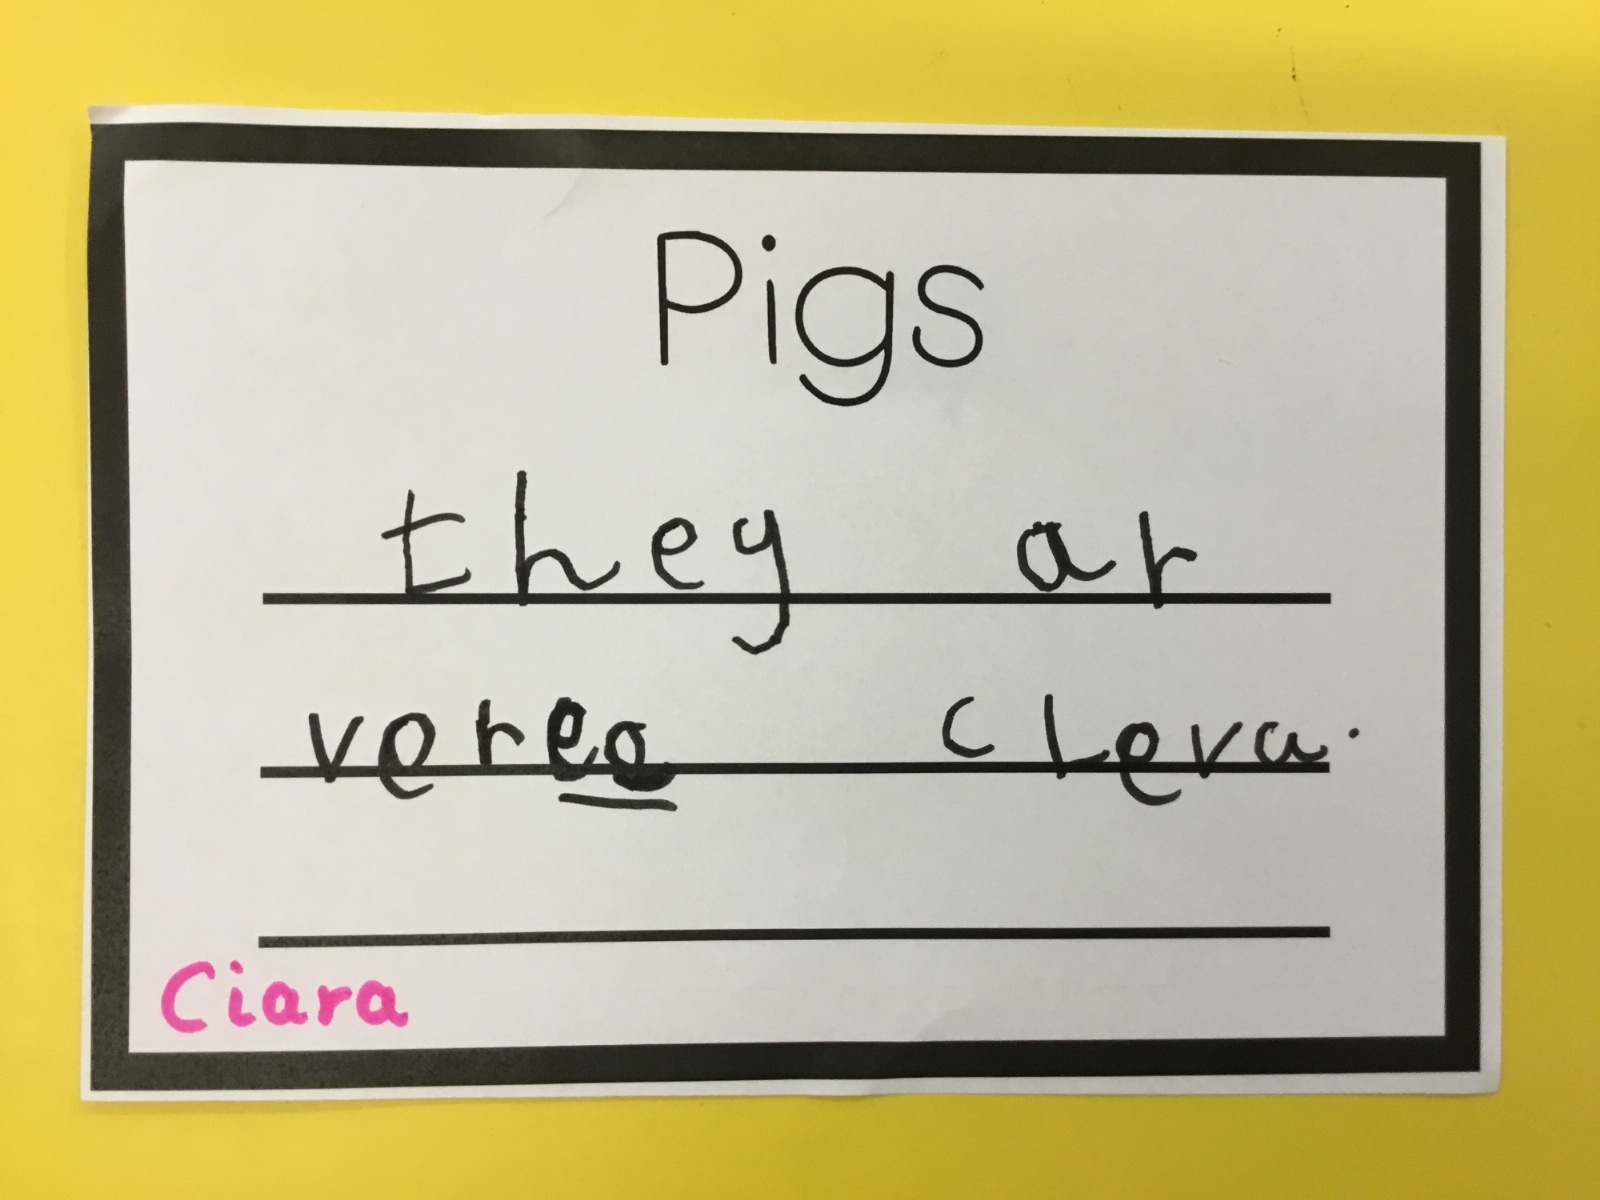 Pigs
they ar
veree cleva.
Ciara